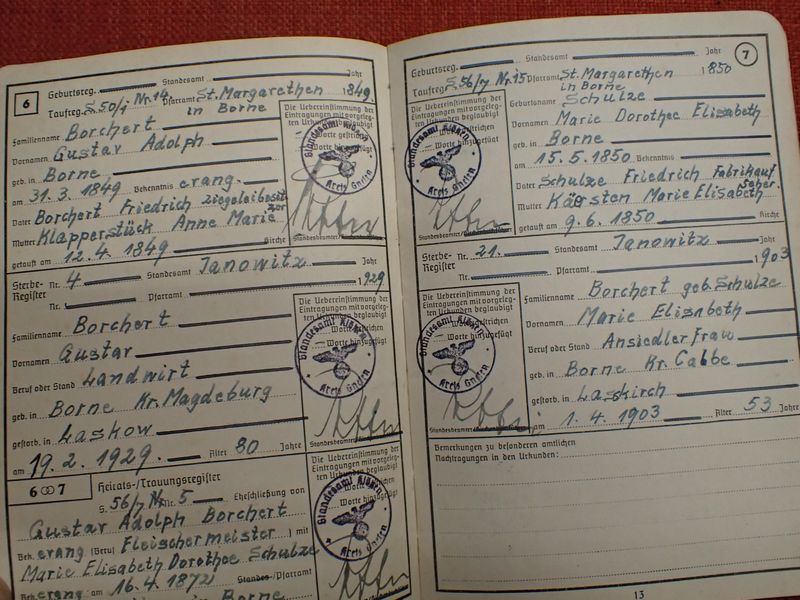 6
Geburtsreg. Standesamt Jahr
Taufreg. S. 50/1 Nr. 14. Pfarramt St. Margarethen 1849.
in Borne
Familienname Borchert
Vornamen Gustav Adolph
geb. in Borne
am 31. 3. 1849 Bekenntnis evang.
Vater Borchert Friedrich Ziegeleibesitzer
Mutter Klapperstück Anne Marie
getauft am 12. 4. 1849 Kirche
Die Uebereinstimmung der
Eintragungen mit vorgeleg-
ten Urkunden beglaubigt
Worte gestrichen
Worte hinzugefügt
Standesamt Kreis Gnesen
Standesbeamter
Sterbe- Nr. 4 Standesamt Janowitz Jahr
Register Nr. Pfarramt 1929
Familienname Borchert
Vornamen Gustav
Beruf oder Stand Landwirt
geb. in Borne Kr. Magdeburg
gestorb. in Laskow
am 19. 2. 1929. Alter 80 Jahre
Die Uebereinstimmung der
Eintragungen mit vorgeleg-
ten Urkunden beglaubigt
Worte gestrichen
Worte hinzugefügt
Standesamt Kreis Gnesen
Standesbeamter
6 ∞ 7 Heirats-/Trauungsregister
S. 56/7 Nr. 5 Eheschließung von
Gustav Adolph Borchert
Bek. evang (Beruf) Fleischermeister) mit
Marie Elisabeth Dorothee Schulze
Bek. evang am 16. 4. 1872 Standes-/Pfarramt
in Borne
Die Uebereinstimmung der
Eintragungen mit vorgeleg-
ten Urkunden beglaubigt
Standesamt Kreis Gnesen
7
Geburtsreg. Standesamt Jahr
Taufreg. S. 56/7 Nr. 15 Pfarramt St. Margarethen 1850
in Borne
Geburtsname Schulze
Vornamen Marie Dorothee Elisabeth
geb. in Borne
am 15. 5. 1850 Bekenntnis
Vater Schulze Friedrich Fabrikaufseher.
Mutter Karsten Marie Elisabeth
getauft am 9. 6. 1850 Kirche
Die Uebereinstimmung der
Eintragungen mit vorgeleg-
ten Urkunden beglaubigt
Worte gestrichen
Worte hinzugefügt
Standesamt Kreis Gnesen
Standesbeamter
Sterbe- Nr. 21. Standesamt Janowitz Jahr
Register Nr. Pfarramt 1903
Familienname Borchert geb. Schulze
Vornamen Marie Elisabeth
Beruf oder Stand Ansiedler Frau
geb. in Borne Kr. Calbe
gestorb. in Laskirch
am 1. 4. 1903 Alter 53 Jahre
Die Uebereinstimmung der
Eintragungen mit vorgeleg-
ten Urkunden beglaubigt
Worte gestrichen
Worte hinzugefügt
Standesamt Kreis Gnesen
Standesbeamter
Bemerkungen zu besonderen amtlichen
Nachtragungen in den Urkunden:
13